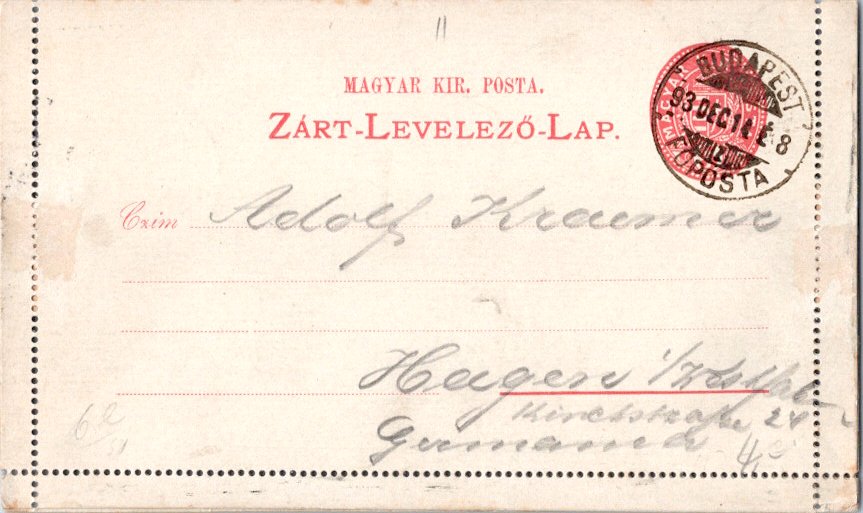 MAGYAR KIR. POSTA.
ZÁRT-LEVELEZŐ-LAP.
MAGYAR
BUDAPEST
93 DEC 14 É 8
FŐPOSTA
Czim Adolf Kraemer
Hagen i/Westfal
Kirchstraße 24
Germania